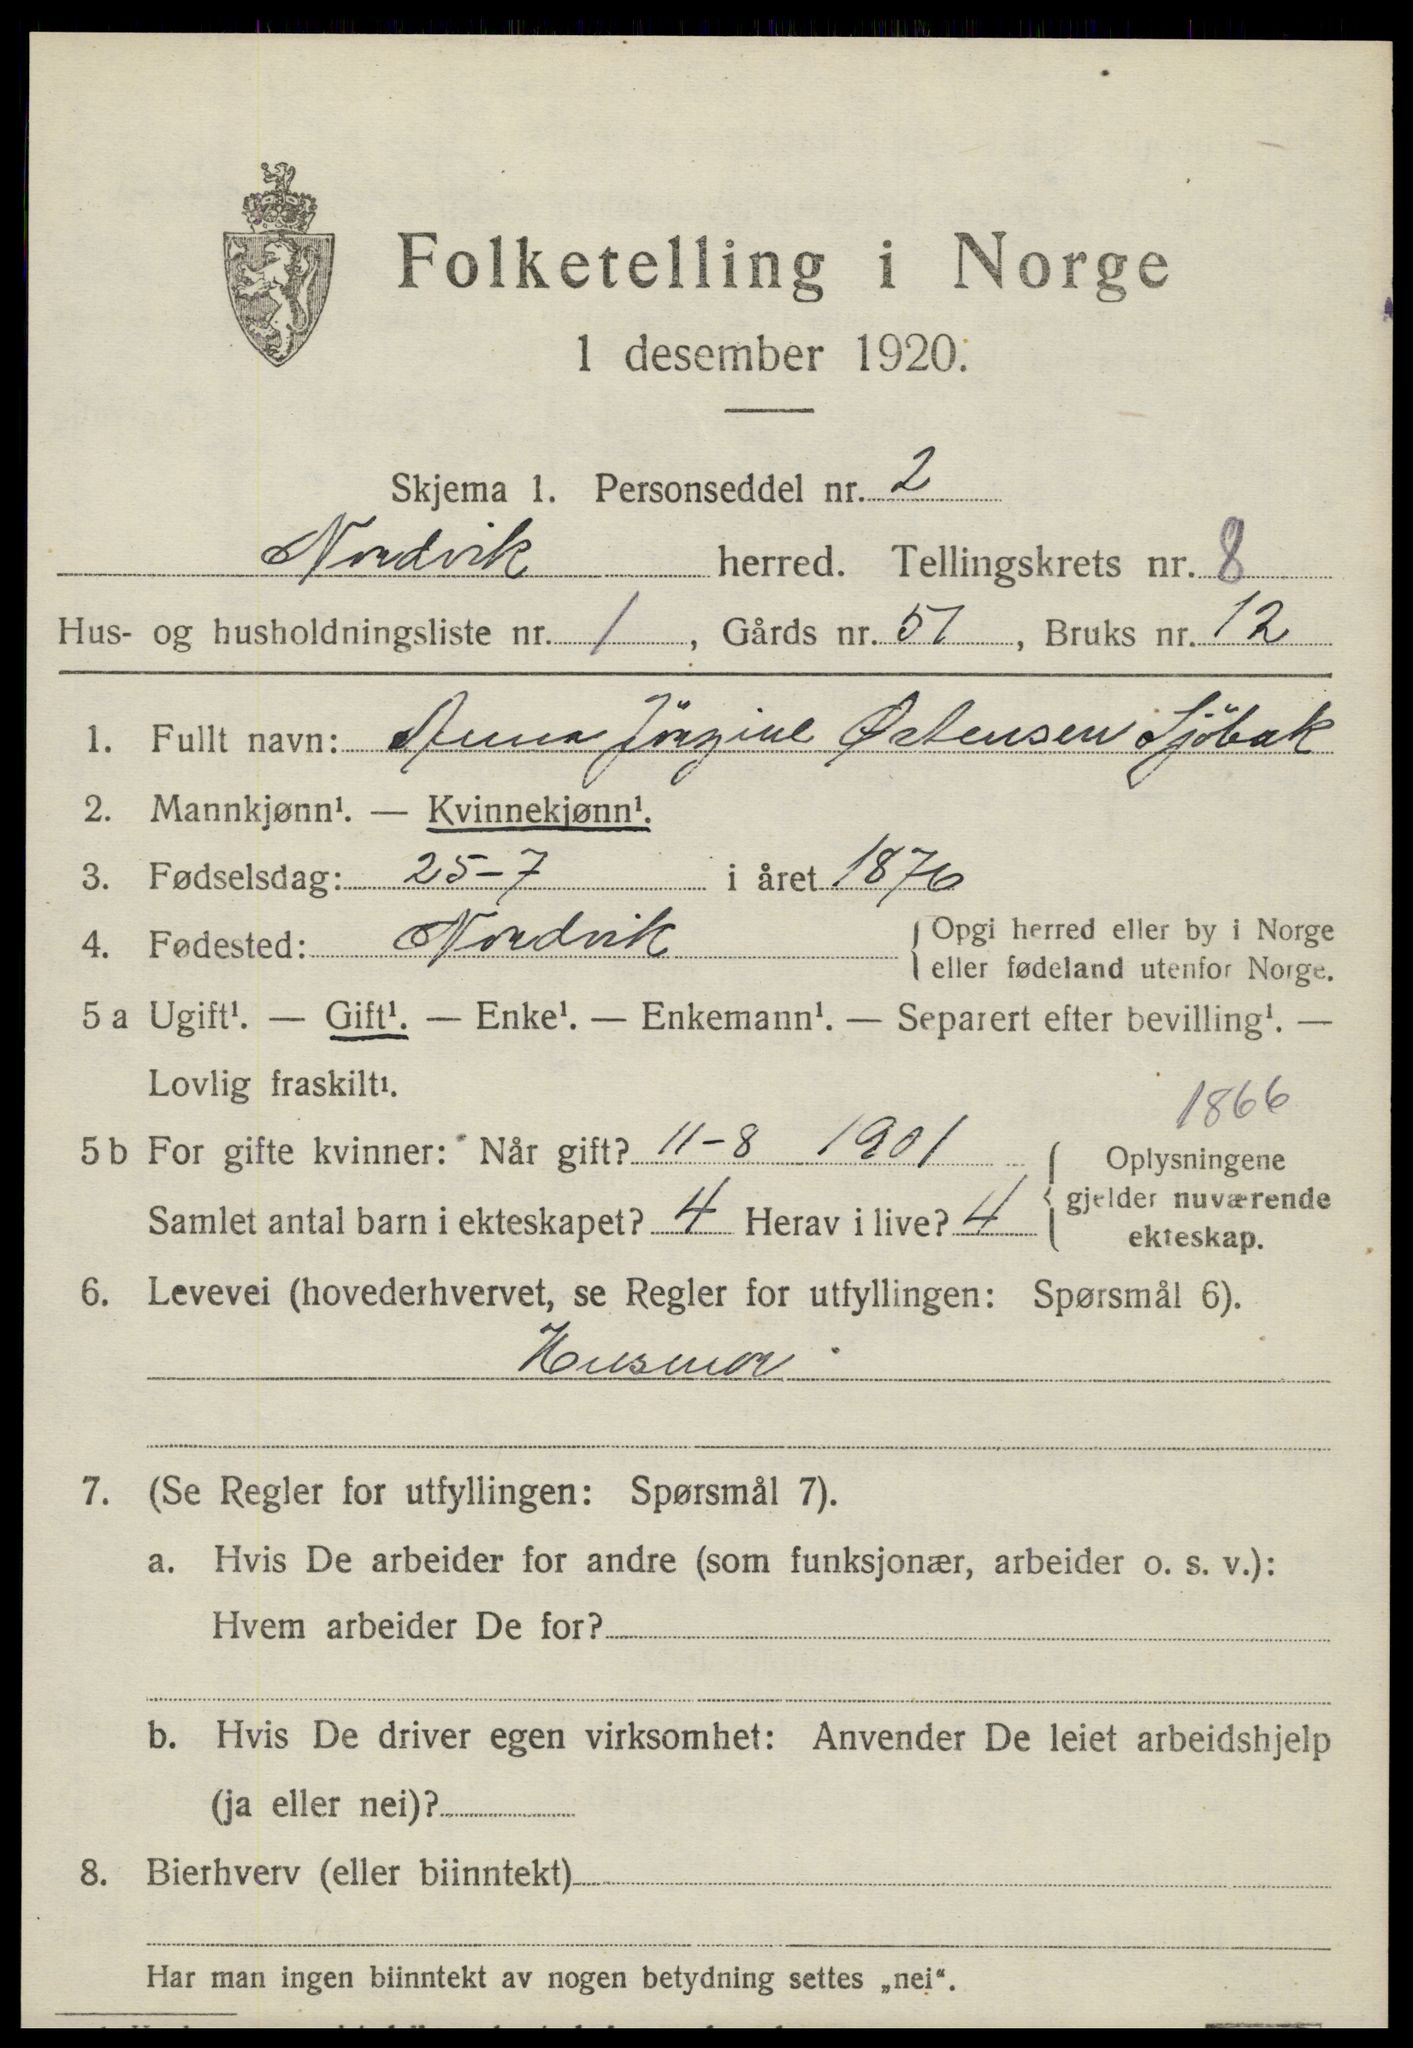 Folketelling i Norge
1 desember 1920.
Skjema 1. Personseddel nr. 2
Nordvik herred. Tellingskrets nr. 8
Hus- og husholdningsliste nr. 1, Gårds nr. 51, Bruks nr. 12
1. Fullt navn: Anna Jörgine Østensen Sjöbak
2. Mannkjønn¹. — Kvinnekjønn¹.
3. Fødselsdag: 25-7 i året 1876
4. Fødested: Nordvik { Opgi herred eller by i Norge
eller fødeland utenfor Norge.
5 a Ugift¹. — Gift¹. — Enke¹. — Enkemann¹. — Separert efter bevilling¹. —
Lovlig fraskilt¹.
1866
5 b For gifte kvinner: Når gift? 11-8 1901 { Oplysningene
gjelder nuværende
ekteskap.
Samlet antal barn i ekteskapet? 4 Herav i live? 4
6. Levevei (hovederhvervet, se Regler for utfyllingen: Spørsmål 6).
Husmor
7. (Se Regler for utfyllingen: Spørsmål 7).
a. Hvis De arbeider for andre (som funksjonær, arbeider o. s. v.):
Hvem arbeider De for?
b. Hvis De driver egen virksomhet: Anvender De leiet arbeidshjelp
(ja eller nei)?
8. Bierhverv (eller biinntekt)
Har man ingen biinntekt av nogen betydning settes „nei“.